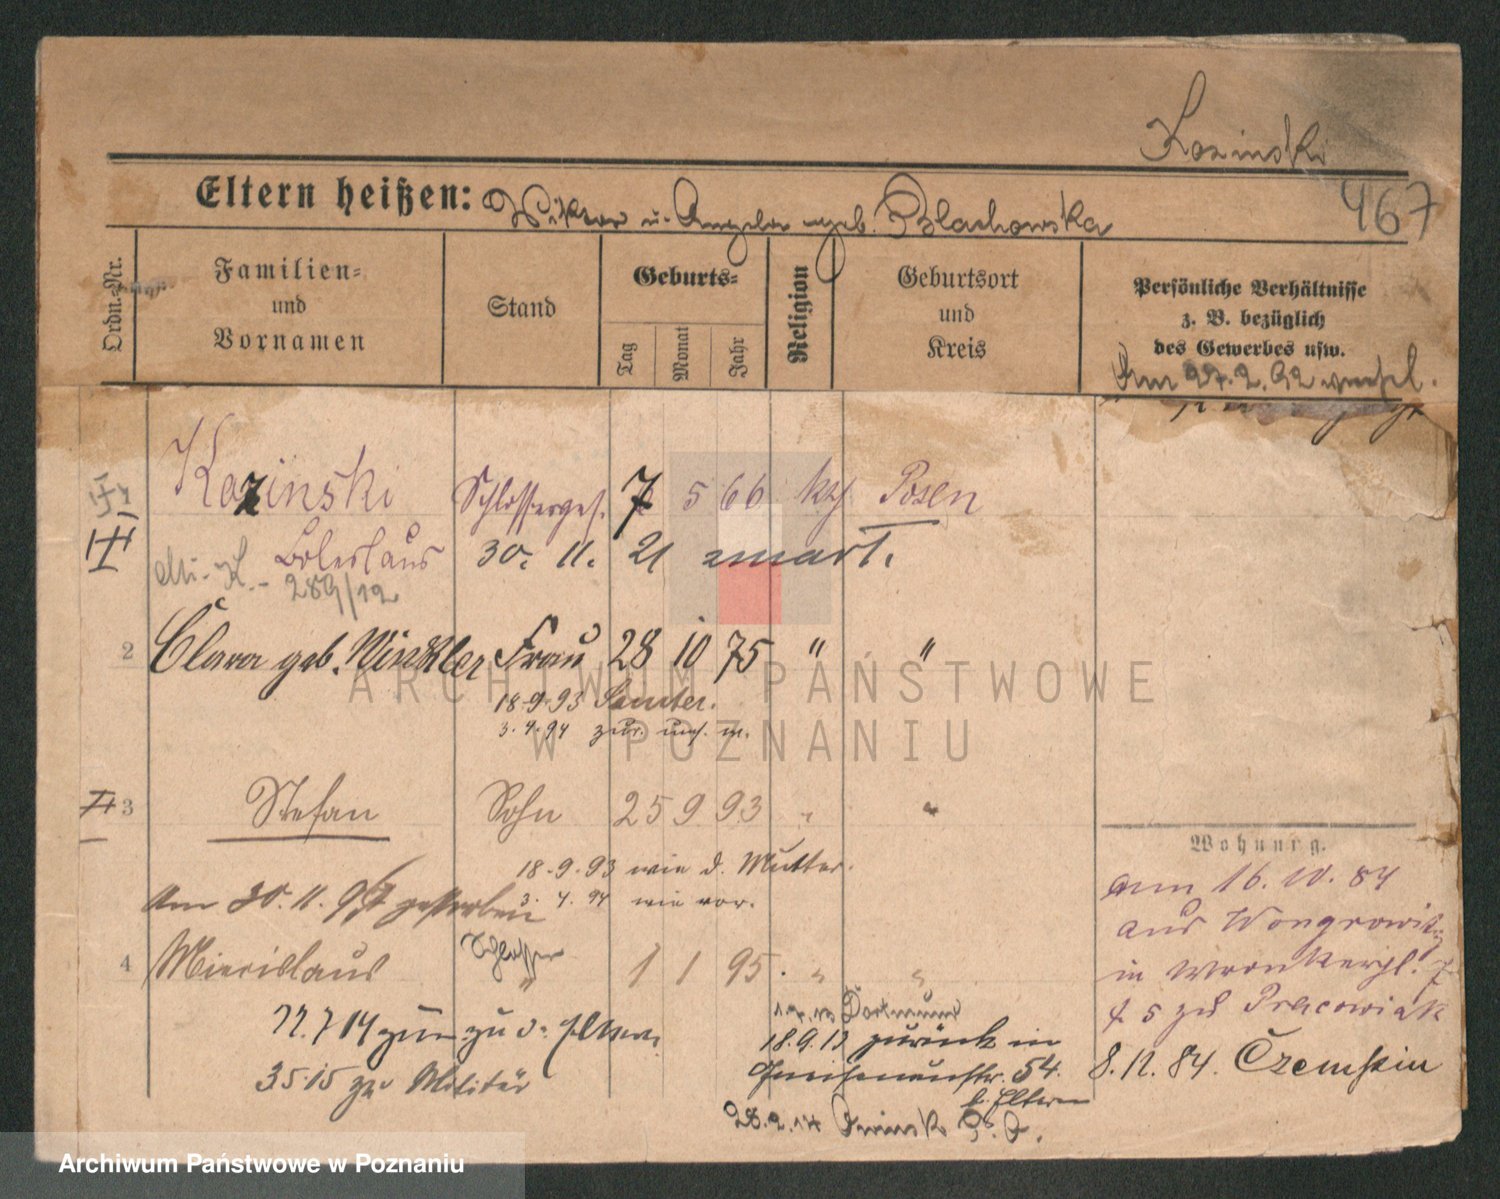 Kozinski
467
Eltern heißen: Wiktor u. Angela geb. Blachowska
Ordn.-Nr.
Familien-
und
Vornamen
Stand
Geburts-
Tag
Monat
Jahr
Religion
Geburtsort
und
Kreis
Persönliche Verhältnisse
z. B. bezüglich
des Gewerbes usw.
Am 27. 2. 92
Kozinski Schlosserges. 7 5 66 kth Posen
Boleslaus 30. 11. 21
289/12
2 Clara geb. Winkler Frau 28 10 75 " "
18.9.93 Samter.
3.4.94 zur.
3 Stefan Sohn 25 9 93 " "
18.9.93 wie d. Mutter.
3. 4. 94 wie vor.
Am 30. 11. gestorben
4 Miecislaus Schlosser " 1 1 95 " "
22.7 14 zu d. Eltern
Dortmund
18.9.13 zurück in
Gneisenaustr. 54.
b. Eltern
3 5 15 zu Militär
28.2.14
Wohnung.
am 16. 10. 84
aus Wongrowitz
in Wronkerpl.
4 5 zu Pracowiak
8. 12. 84. Czempin
ARCHIWUM PAŃSTWOWE
W POZNANIU
Archiwum Państwowe w Poznaniu